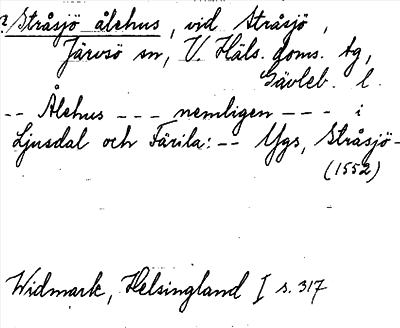 ? Stråsjö ålehus, vid Stråsjö,
Järvsö sn, V. Häls. doms. tg,
Gävleb. l.
-- Ålehus --- nemligen --- i
Ljusdal och Färila: -- Ygs, Stråsjö-
(1552)
Widmark, Helsingland I s. 317